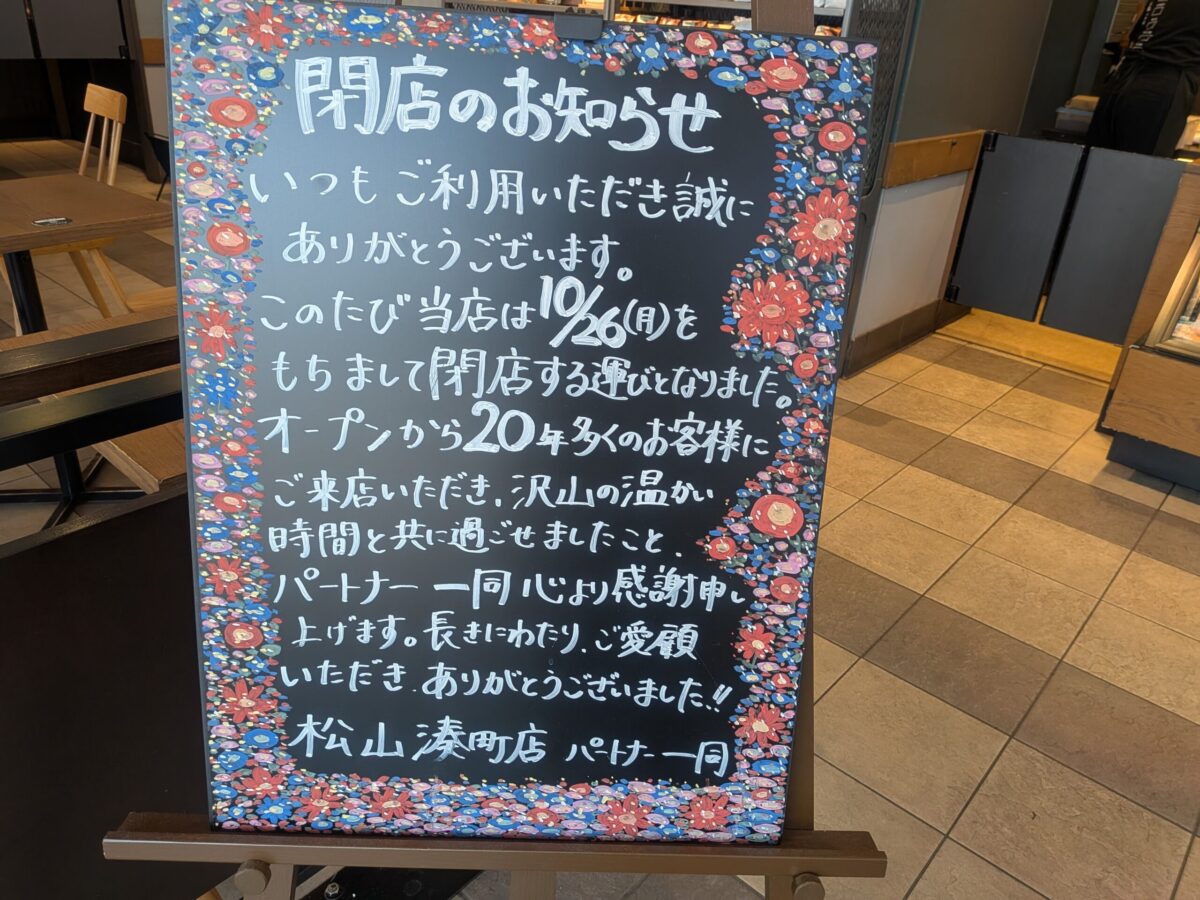 閉店のお知らせ
いつもご利用いただき誠に
ありがとうございます。
このたび当店は10/26(月)を
もちまして閉店する運びとなりました。
オープンから20年多くのお客様に
ご来店いただき、沢山の温かい
時間と共に過ごせましたこと、
パートナー一同心より感謝申し
上げます。長きにわたり、ご愛顧
いただき、ありがとうございました!!
松山湊町店 パートナー一同